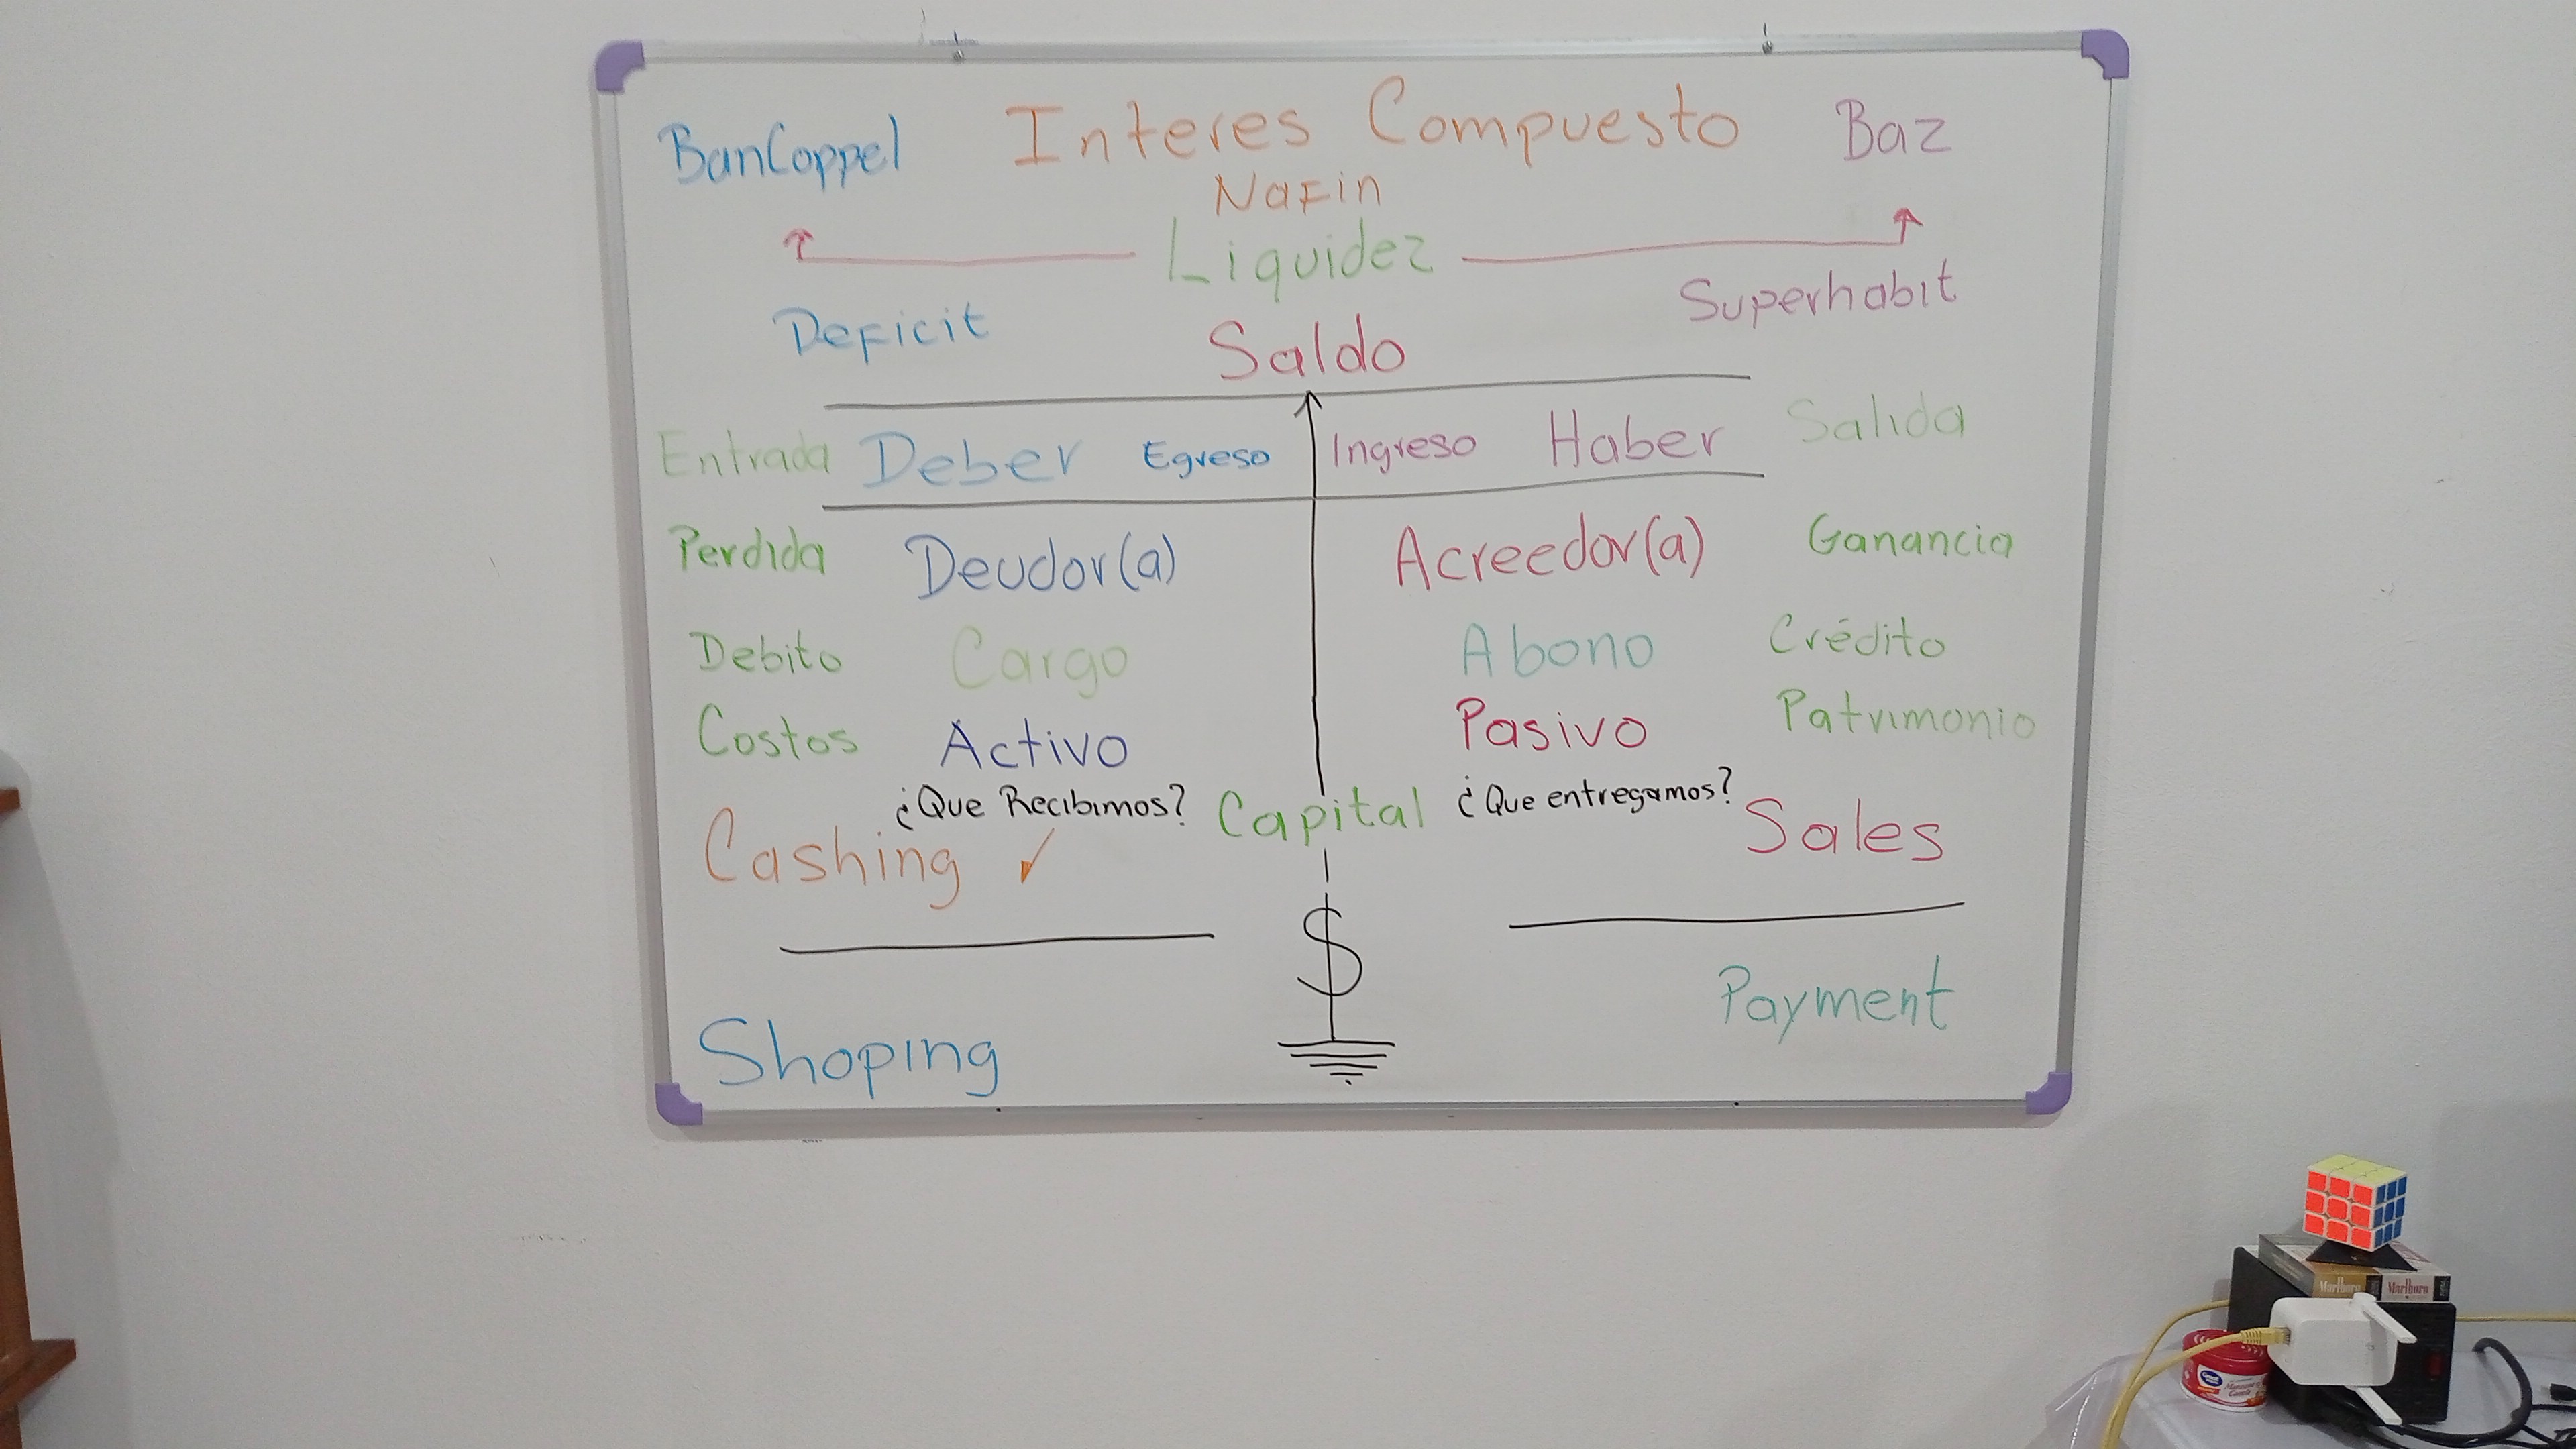 BanCoppel Interes Compuesto Baz
NaFin
Liquidez
Deficit Saldo Superhabit
Entrada Deber Egreso Ingreso Haber Salida
Perdida Deudor(a) Acreedor(a) Ganancia
Debito Cargo Abono Crédito
Costos Activo Pasivo Patrimonio
¿Que Recibimos? Capital ¿Que entregamos?
Cashing ✓ Sales
$
Shoping Payment
Marlboro Marlboro
Great Value